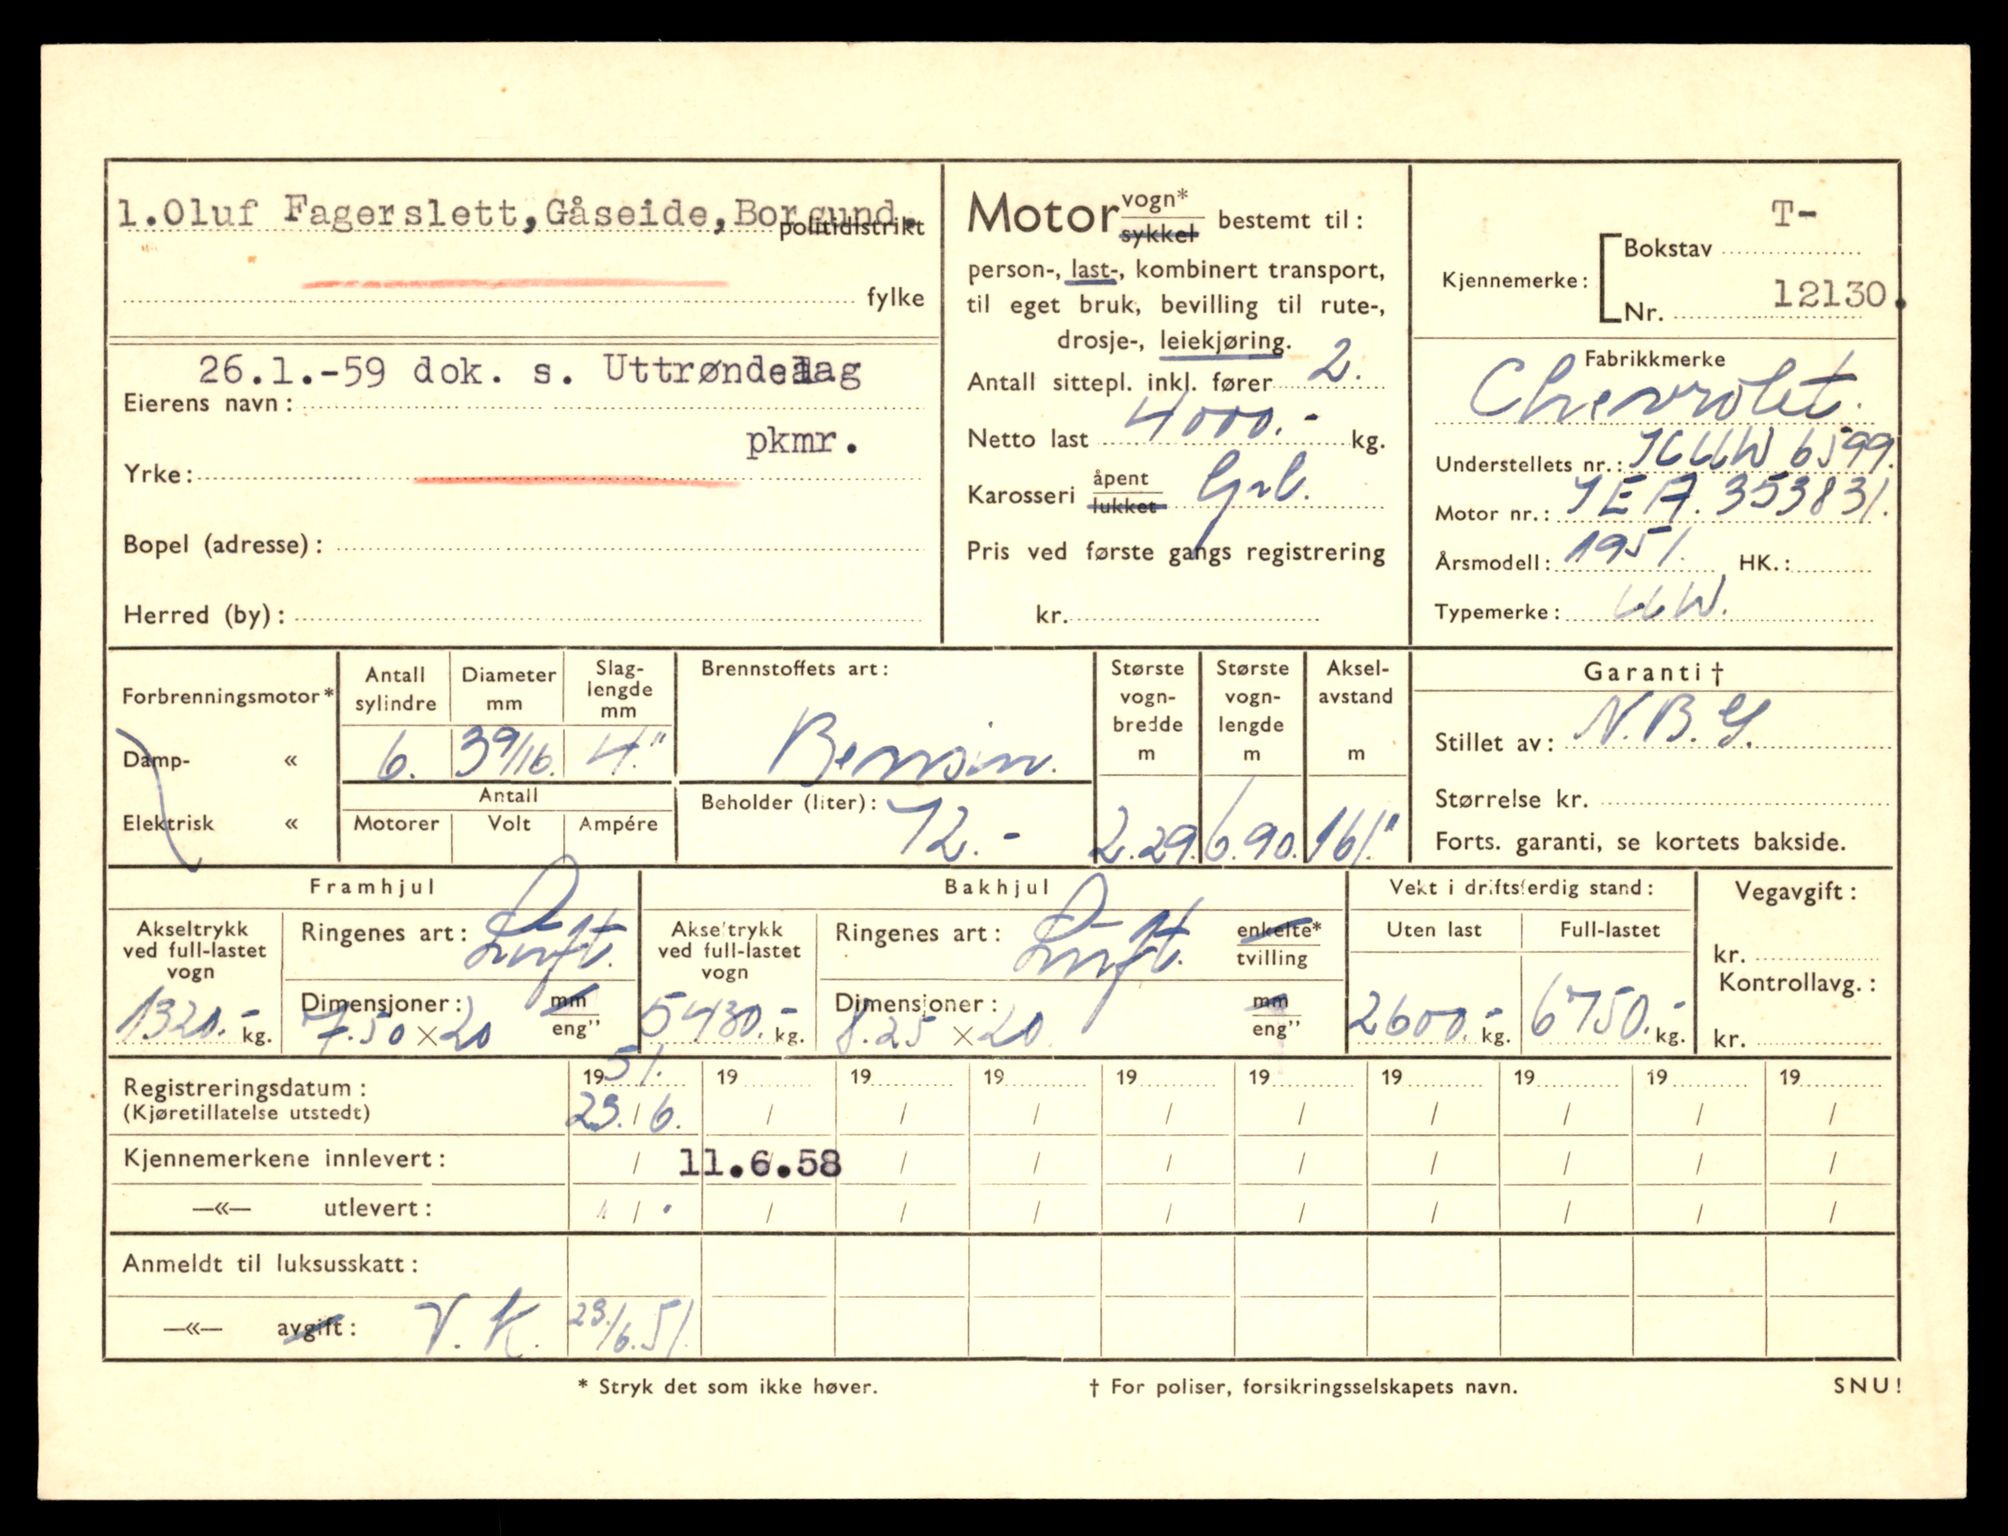 1.Oluf Fagerslett,Gåseide,Borgund.
politidistrikt
fylke
26.1.-59 dok. s. Uttrøndelag
Eierens navn:
pkmr.
Yrke:
Bopel (adresse):
Herred (by):
Motor vogn* sykkel bestemt til:
person-, last-, kombinert transport,
til eget bruk, bevilling til rute-,
drosje-, leiekjøring.
Antall sittepl. inkl. fører 2.
Netto last 4000.- kg.
Karosseri åpent lukket
Pris ved første gangs registrering
kr.
T-
Kjennemerke: Bokstav
12130.
Nr.
Fabrikkmerke
Chevrolet.
Understellets nr.: UW 6599.
Motor nr.: JEA. 353831.
Årsmodell: 1951. HK.:
Typemerke: UW.
Forbrenningsmotor*
Damp- «
Elektrisk «
Antall sylindre
Diameter mm
Slaglengde mm
6. 3 9/16. 4."
Antall
Motorer Volt Ampére
Brennstoffets art:
Bensin.
Beholder (liter): 72.-
Største vognbredde m
Største vognlengde m
Akselavstand m
2.29. 6.90. 161."
Garanti †
Stillet av: N.B.G.
Størrelse kr.
Forts. garanti, se kortets bakside.
Framhjul
Akseltrykk ved full-lastet vogn
1320.- kg.
Ringenes art: Luft.
Dimensjoner: mm
7.50 × 20 eng"
Bakhjul
Akseltrykk ved full-lastet vogn
5430.- kg.
Ringenes art: Luft. enkelte* tvilling
Dimensjoner: mm
8.25 × 20 eng"
Vekt i driftsferdig stand:
Uten last Full-lastet
2600.- kg. 6750.- kg.
Vegavgift:
kr.
Kontrollavg.:
kr.
Registreringsdatum: 1951. 19 19 19 19 19 19 19 19 19
(Kjøretillatelse utstedt) 23./6. / / / / / / / / /
Kjennemerkene innlevert: / 11.6.58 / / / / / / / /
—«— utlevert: / / / / / / / / / /
Anmeldt til luksusskatt:
—«— avgift: V.K. 23./6.51.
* Stryk det som ikke høver.
† For poliser, forsikringsselskapets navn.
SNU!